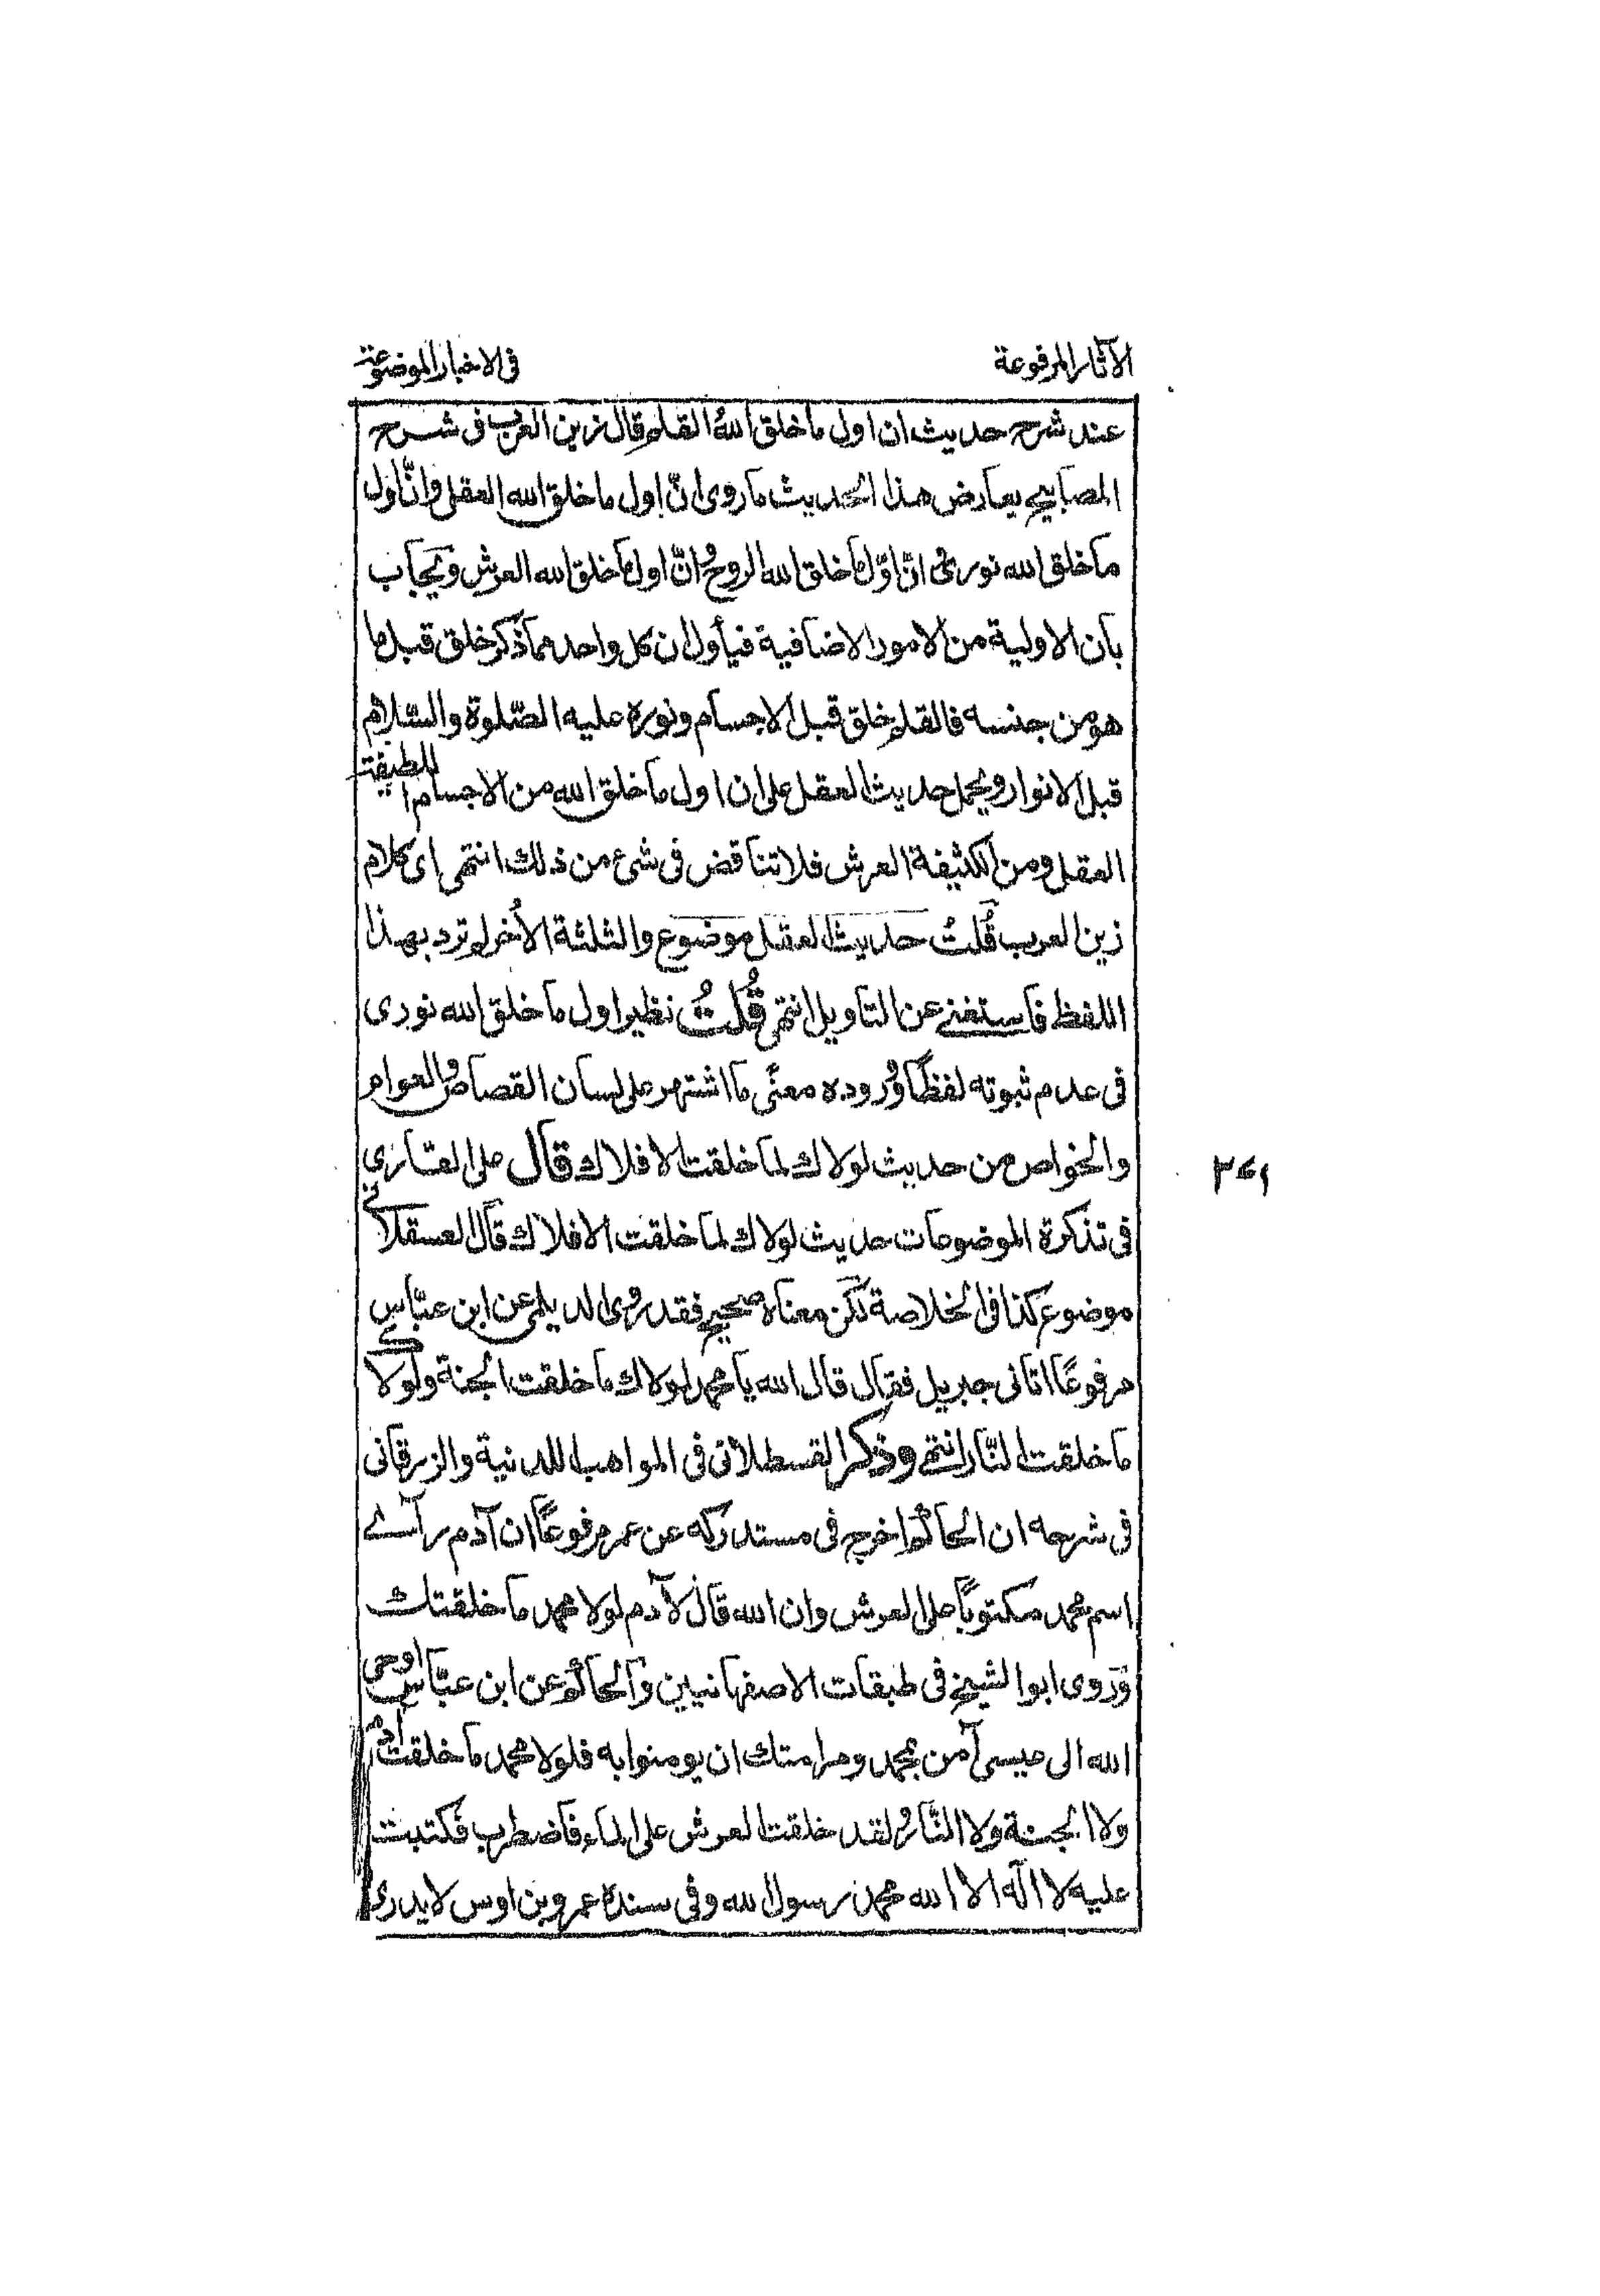 الآثار المرفوعة
فى الاخبار الموضوعة
عند شرح حديث ان اول ما خلق اللهُ القلم قال زين العرب فى شرح
المصابيح يعارض هذا الحديث ما روى انّ اول ما خلق الله العقل وانّ اول
ما خلق الله نورى وانّ اوّل ما خلق الله الروح وانّ اول ما خلق الله العرش ويجاب
بان الاولية من الامور الاضافية فيأول ان كل واحد مما ذكر خلق قبل ما
هو من جنسه فالقلم خلق قبل الاجسام ونوره عليه الصّلوة والسّلام
قبل الانوار ويحمل حديث العقل على ان اول ما خلق الله من الاجسام اللطيفة
العقل ومن الكثيفة العرش فلا تناقض فى شئ من ذلك انتهى اى كلام
زين العرب قُلتُ حديث العقل موضوع والثلثة الأُخر لم ترد بهذا
اللفظ فاستغنى عن التاويل انتهى قُلتُ نظير اول ما خلق الله نورى
فى عدم ثبوته لفظًا ووروده معنًى ما اشتهر على لسان القصاص والعوام
والخواص من حديث لولاك لما خلقت الافلاك قال على القارى
فى تذكرة الموضوعات حديث لولاك لما خلقت الافلاك قال العسقلانى
موضوع كذا فى الخلاصة لكن معناه صحيح فقد روى الديلمى عن ابن عبّاس
مرفوعًا اتانى جبريل فقال قال الله يا محمد لولاك ما خلقت الجنة ولولاك
ما خلقت النّار انتهى وذكر القسطلانى فى المواهب اللدنية والزرقانى
فى شرحه ان الحاكم اخرج فى مستدركه عن عمر مرفوعًا ان آدم رآى
اسم محمد مكتوبًا على العرش وان الله قال لآدم لولا محمد ما خلقتك
وروى ابو الشيخ فى طبقات الاصفهانيين والحاكم عن ابن عبّاس اوحى
الله الى عيسى آمن بمحمد ومر امتك ان يومنوا به فلولا محمد ما خلقت آدم
ولا الجنة ولا النّار ولقد خلقت العرش على الماء فاضطرب فكتبت
عليه لا اله الا الله محمد رسول الله وفى سنده عمرو بن اوس لا يدرى